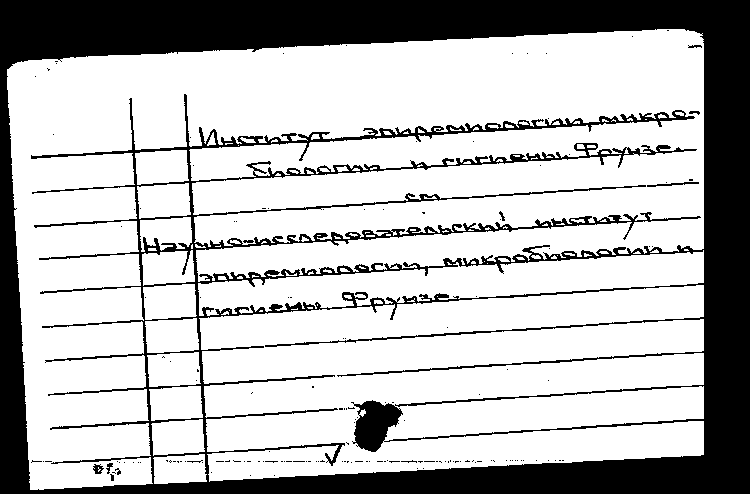 Институт эпидемиологии, микро-
биологии и гигиены. Фрунзе.
см
Научно-исследовательский институт
эпидемиологии, микробиологии и
гигиены. Фрунзе.